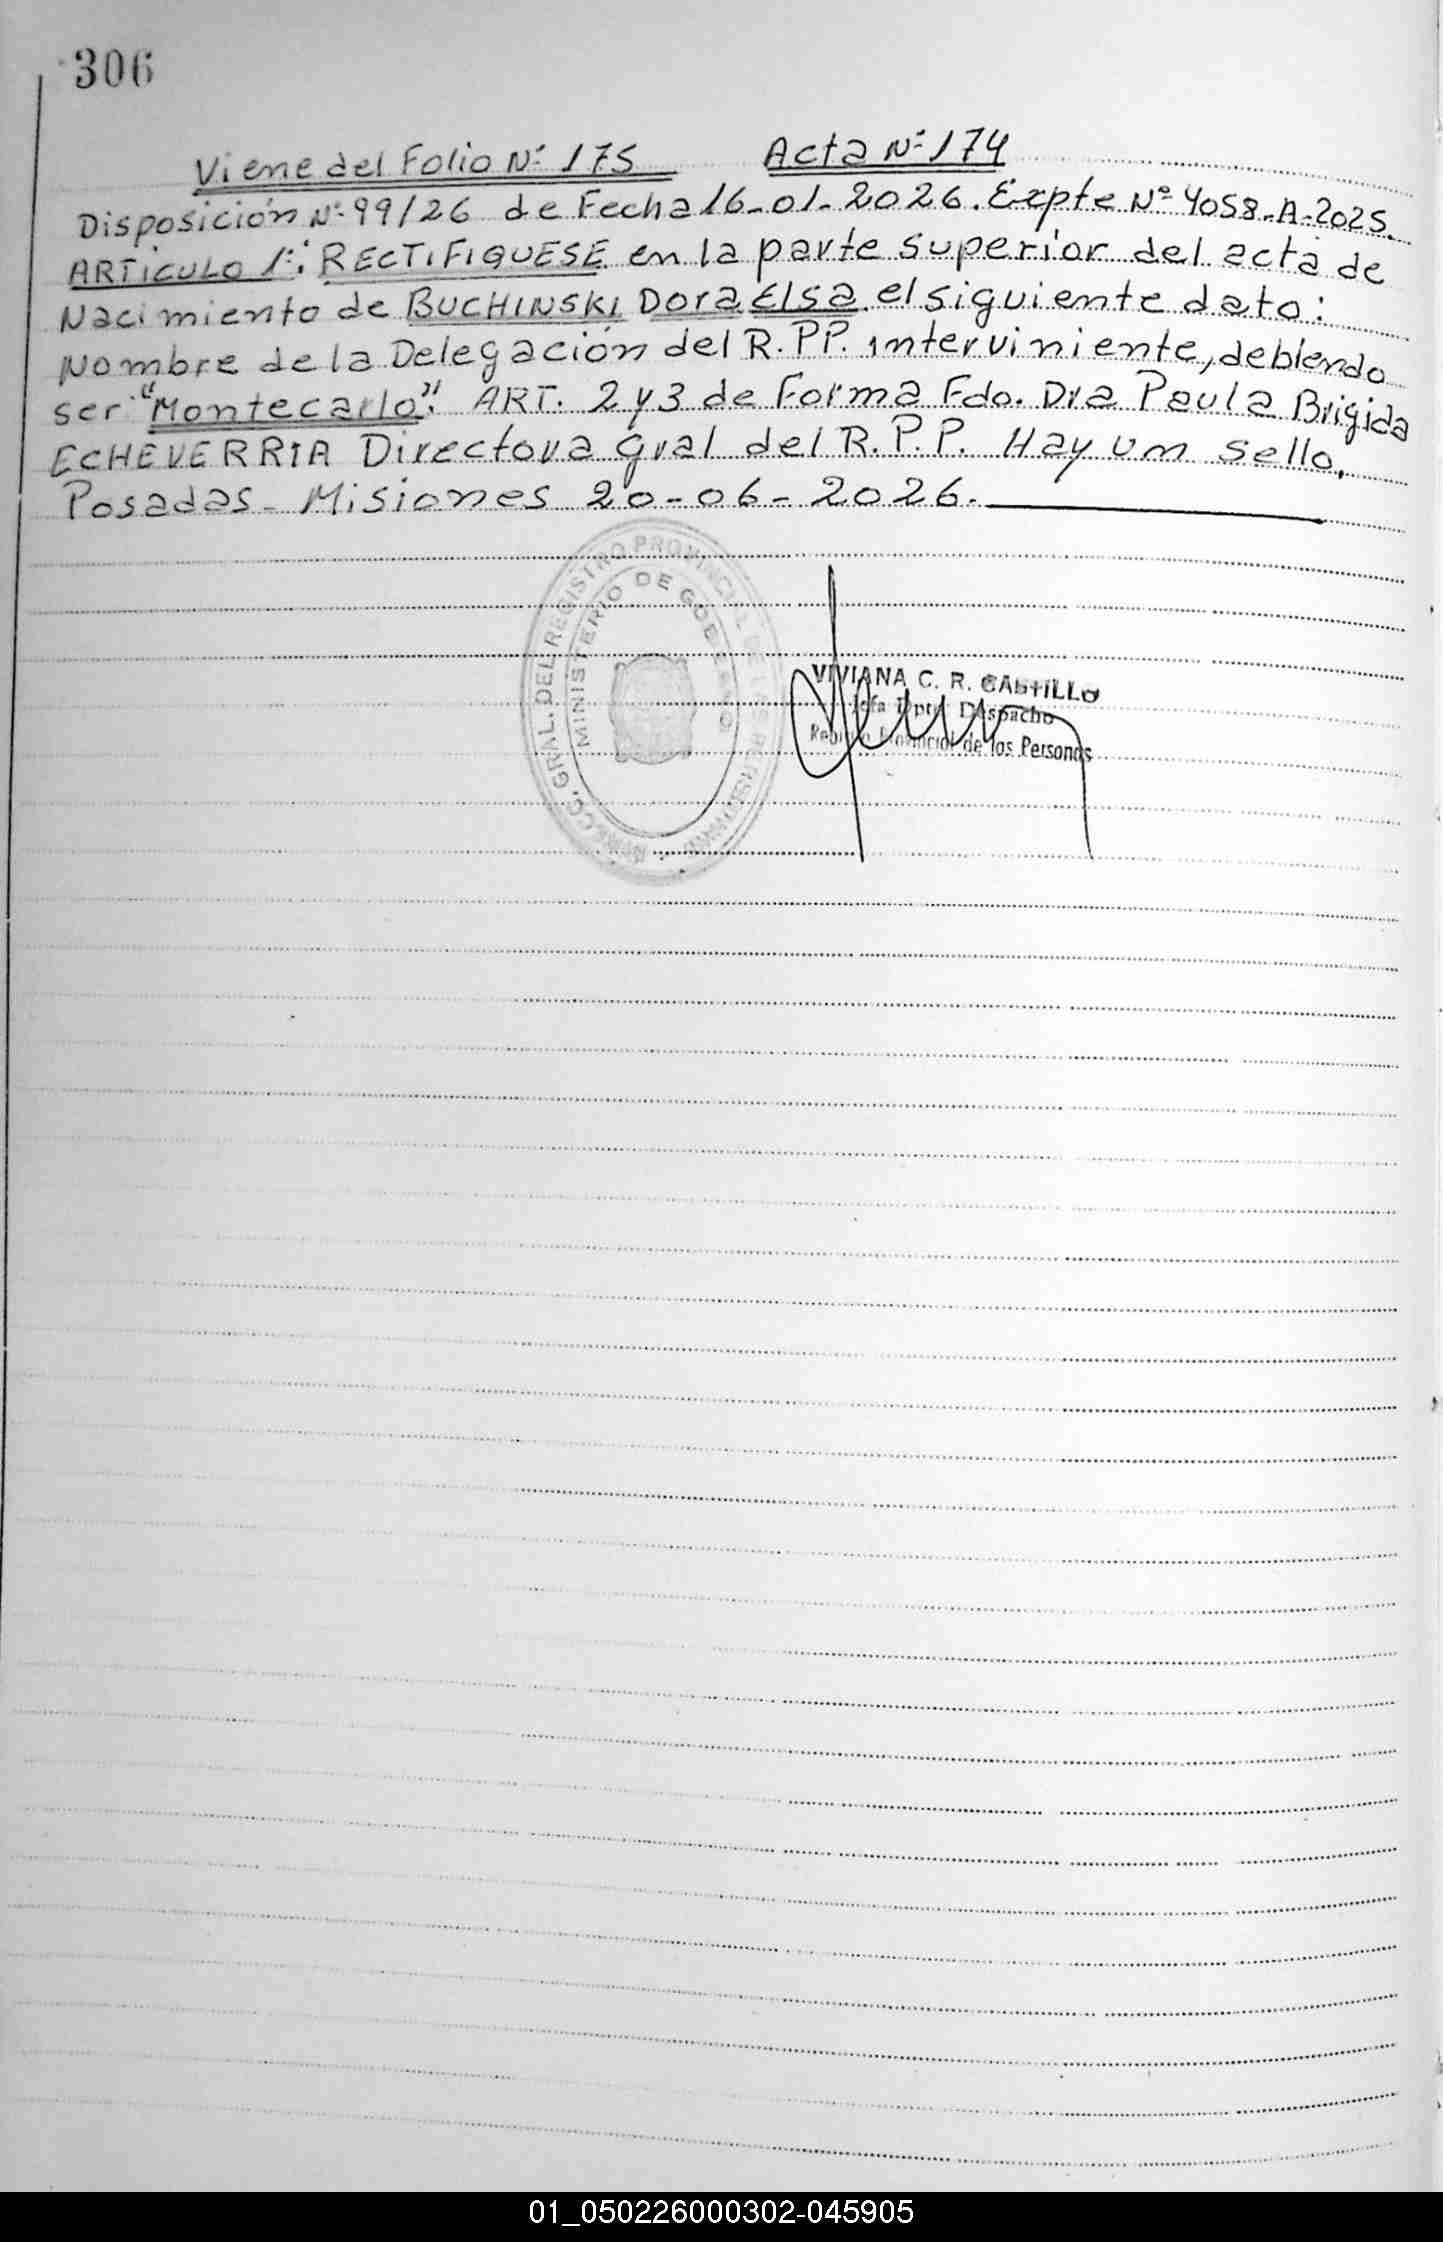 306
Viene del Folio Nº 175 Acta Nº 174
Disposición Nº 99/26 de Fecha 16-01-2026. Expte Nº 4058-A-2025.
ARTiCULO 1º: RECTiFIQUESE en la parte superior del acta de
Nacimiento de BUCHINSKI Dora Elsa el siguiente dato:
Nombre de la Delegación del R.PP. interviniente, debiendo
ser "Montecarlo". ART. 2 y 3 de Forma Fdo. Dra Paula Brigida
ECHEVERRIA Directora Gral del R.P.P. Hay un Sello.
Posadas - Misiones 20-06-2026.
GRAL. DEL REGISTRO PROVINCIAL DE LAS PERSONAS
MINISTERIO DE GOBIERNO
VIVIANA C. R. CASTILLO
Jefa Dpto. Despacho
Registro Provincial de las Personas
01_050226000302-045905